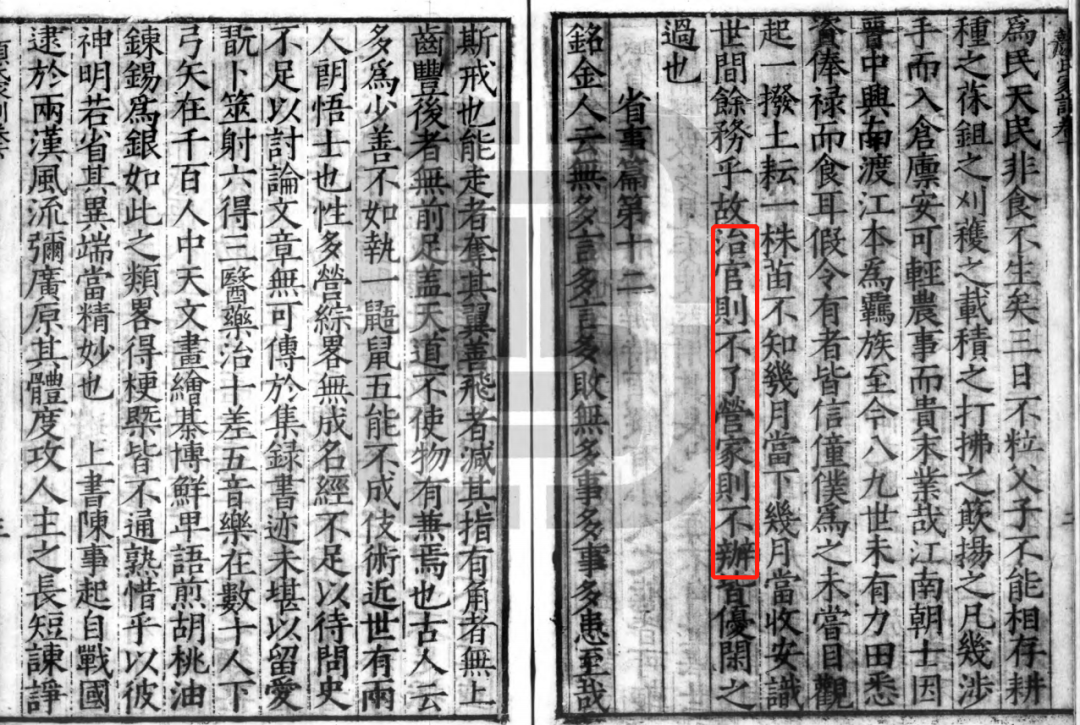 爲民天民非食不生矣三日不粒父子不能相存耕
種之茠鉏之刈穫之載積之打拂之簸揚之凡幾涉
手而入倉廩安可輕農事而貴末業哉江南朝士因
晉中興南渡江本爲羈族至今八九世未有力田悉
資俸禄而食耳假令有者皆信僮僕爲之未嘗目觀
起一撥土耘一株苗不知幾月當下幾月當收安識
世間餘務乎故治官則不了營家則不辦皆優閑之
過也
省事篇第十二
銘金人云無多言多言多敗無多事多事多患至哉
斯戒也能走者奪其翼善飛者減其指有角者無上
齒豐後者無前足蓋天道不使物有兼焉也古人云
多爲少善不如執一鼫鼠五能不成伎術近世有兩
人朗悟士也性多營綜畧無成名經不足以待問史
不足以討論文章無可傳於集録書迹未堪以留愛
翫卜筮射六得三醫藥治十差五音樂在數十人下
弓矢在千百人中天文畫繪棊博鮮卑語煎胡桃油
鍊錫爲銀如此之類畧得梗槩皆不通熟惜乎以彼
神明若省其異端當精妙也 上書陳事起自戰國
逮於兩漢風流彌廣原其體度攻人主之長短諫諍